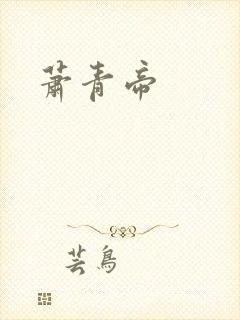 萧青帝
芸鸟